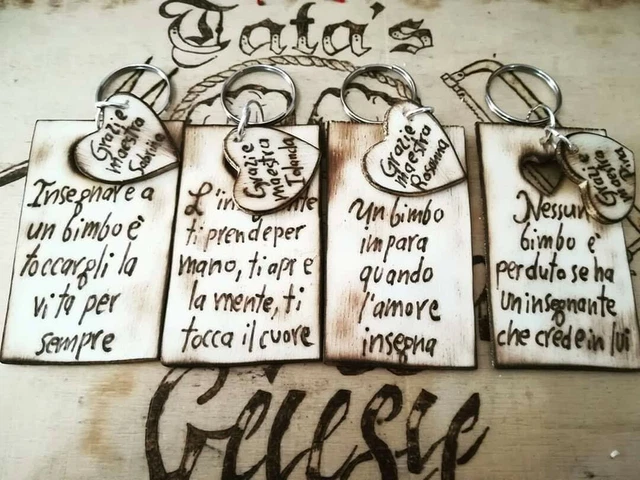 Tata's
Grazie
maestra
Sabrina
Insegnare a
un bimbo è
toccargli la
vita per
sempre
Grazie
maestra
Iolanda
ti prende per
mano, ti apre
la mente, ti
tocca il cuore
Grazie
maestra
Rosanna
Un bimbo
impara
quando
l'amore
insegna
Grazie
maestra
Nessun
bimbo è
perduto se ha
un insegnante
che crede in lui
Giusy